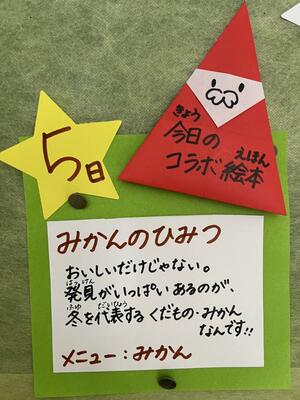 5日
今日の
きょう
コラボ絵本
えほん
みかんのひみつ
おいしいだけじゃない。
発見がいっぱいあるのが、
はっけん
冬を代表するくだもの・みかん
ふゆ だいひょう
なんです!!
メニュー：みかん